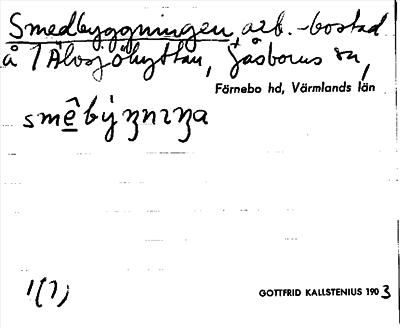 Smedbyggningen, arb.-bostad
å 1 Älvsjöhyttan, Gåsborns sn,
Färnebo hd, Värmlands län
1(7)
GOTTFRID KALLSTENIUS 1903